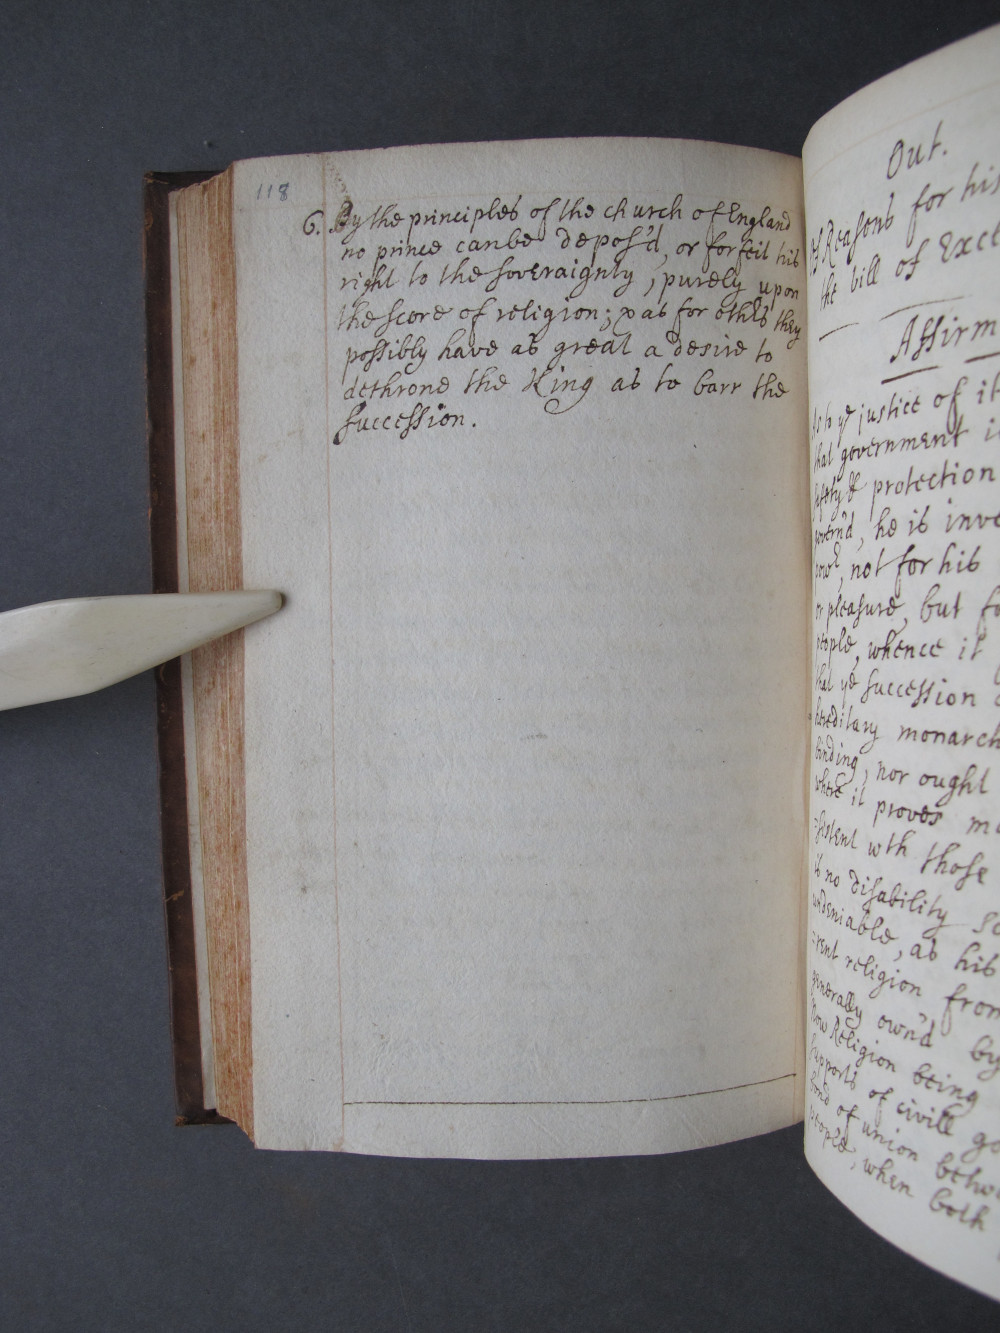 118
6. By the principles of the church of England
no prince canbe depos'd, or forfeit his
right to the soveraignty, purely upon
the score of religion; as for others they
possibly have as great a desire to
dethrone the King as to barr the
succession.
Out.
Reasons for his
the bill of Excl
Affirm
As to ye justice of it
that government i
safety & protection
govern'd, he is inve
not for his
or pleasure, but fo
people, whence it
that ye succession
hereditary monarch
binding, nor ought
where it proves m
-sistent wth those
is no disability
undeniable, as his
-rent religion, from
generally own'd by
now Religion being
supports of civill go
bond of union betwe
people, when both